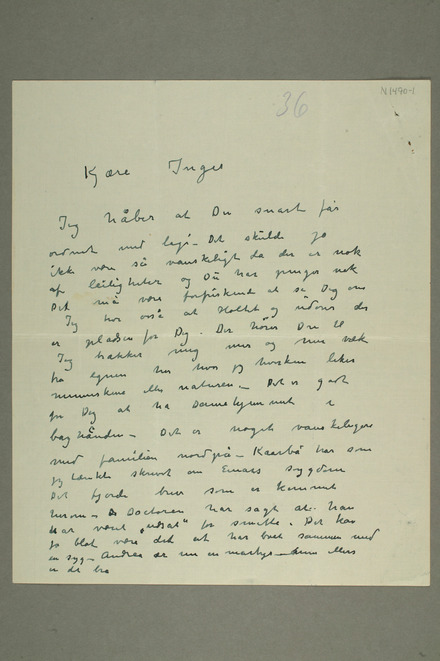 N.1490-1
36
Kjære Inger
Jeg håber at Du snart får
ordnet med leje. Det skulde jo
ikke være så vanskeligt da der er nok
af leiligheter og Du har penger nok
Det må være forfriskend at se Dig om
Jeg tror også at Holtet og der
er pladsen for Dig. Der hører Du til
Jeg trækker mig mer og mer væk
fra egnen her hvor jeg hverken liker
menneskene eller naturen – Det er godt
for Dig at ha Damehjemmet i
baghånden – Det er noget vanskeligere
med familien nordpå – Kaarbö har som
jeg tænkte skrevet om Einars sygdom
Det fjerde brev som er kommet
herom – Doctoren har sagt at han
har været "udsat" for smitte. Det kan
jo blot være det at han har boet sammen med
en syg – Andrea er nu en martyr – dum ellers
er det bra